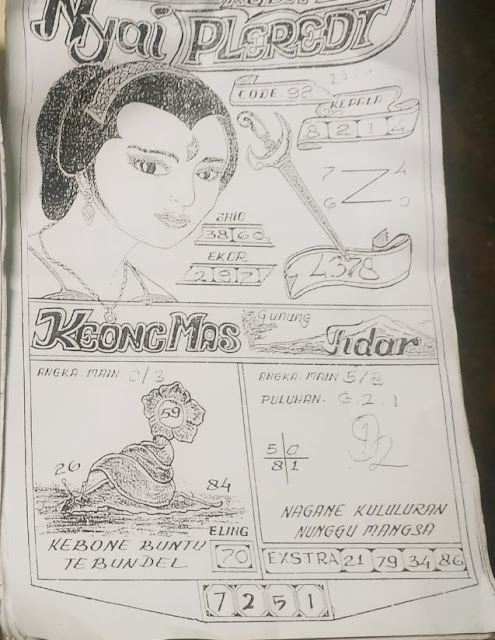 Nyai PLEREDT
CODE. 92
KEPALA
8 2 1 4
7 4
Z
6 0
SHIO
38 60
EKOR
2 9 7
4378
KEONG MAS
Gunung
Tidar
ANGKA MAIN 0/3
59
26
84
ELING
70
KEBONE BUNTU
TEBUNDEL
ANGKA MAIN 5/8
PULUHAN. 6.2.1
5 0
8 1
NAGANE KULULURAN
NUNGGU MANGSA
EXSTRA 21 79 34 86
7 2 5 1